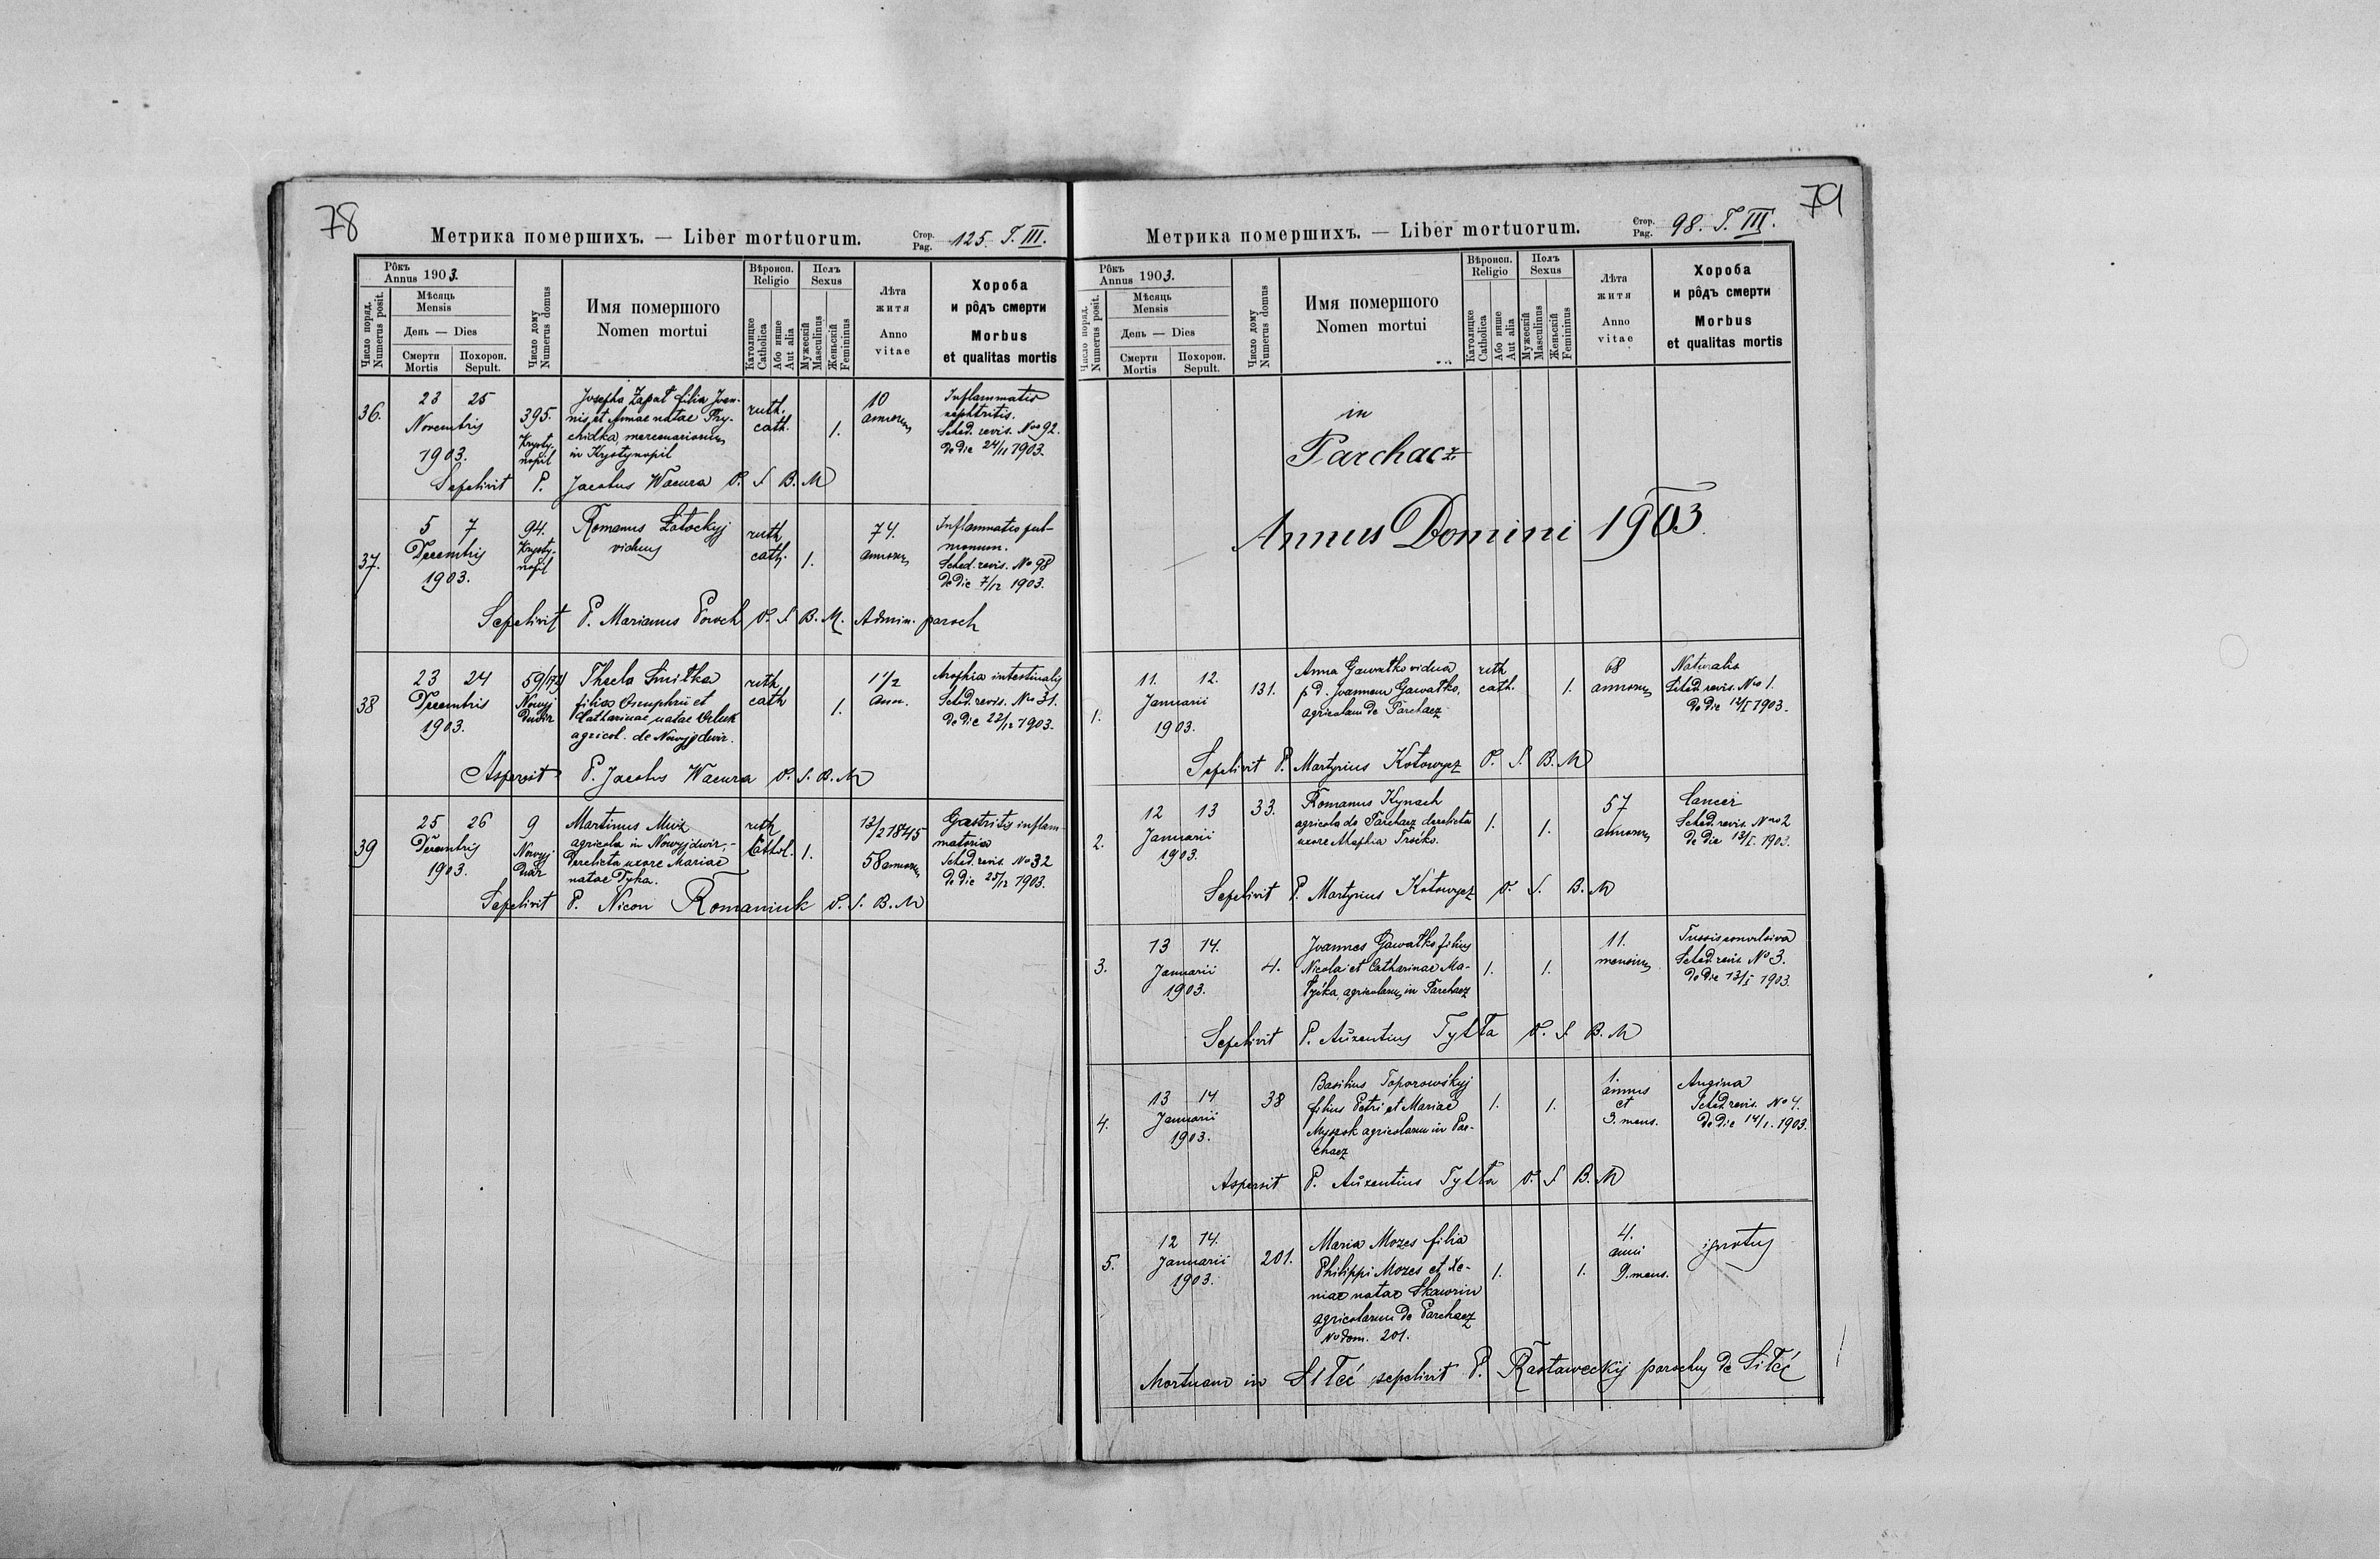 78
Метрика помершихъ. — Liber mortuorum.
Стор. Pag. 125. T. III.
Рôкъ Annus 1903.
Число поряд. Numerus posit.
Мѣсяць Mensis
День — Dies
Смерти Mortis
Похорон. Sepult.
Число дому Numerus domus
Имя помершого
Nomen mortui
Вѣроисп. Religio
Католицке Catholica
Або инше Aut alia
Полъ Sexus
Мужескій Masculinus
Женьскій Femininus
Лѣта житя
Anno vitae
Хороба и рôдъ смерти
Morbus et qualitas mortis
36.
23 25
Novembris
1903.
395.
Krysty-
nopil
Josepha Zapał filia Joan-
nis et Annae natae Pry-
chidka, mercenariorum
in Krystynopil
ruth.
cath.
1.
10
annorum
Inflammatio
nephtritis.
Sched. revis. Nro 92.
de die 24/11 1903.
Sepelivit P. Jacobus Wacura O. S. B. M
37.
5 7
Decembris
1903.
94.
Krysty-
nopil
Romanus Łotockyj
viduus
ruth
cath.
1.
74.
annorum
Inflammatio pul-
monum.
Sched. revis. No 98
de die 7/12 1903.
Sepelivit P. Marianus Powch O. S. B. M. Admin. paroch
38
23 24
Decembris
1903.
59/174
Nowyj
Dwir
Thecla Smitka
filia Onuphrii et
Catharinae natae
agricol. de Nowyjdwir.
ruth
cath
1.
1 1/2
ann.
Atrophia intestinalis
Sched. revis. Nro 31.
de die 23/12 1903.
Aspersit P. Jacobus Wacura O. S. B. M
39
25 26
Decembris
1903.
9
Nowyj
Dwir
Martinus Muz
agricola in Nowyjdwir, -
derelicta uxore Mariae
natae Dyka.
ruth
Cathol.
1.
13/2 1845
58 annorum
Gastritis inflam-
matoria
Sched. revis. No 32
de die 25/12 1903.
Sepelivit P. Nicon Romaniuk O. S. B. M
79
Метрика помершихъ. — Liber mortuorum.
Стор. Pag. 98. T. III.
Рôкъ Annus 1903.
Число поряд. Numerus posit.
Мѣсяць Mensis
День — Dies
Смерти Mortis
Похорон. Sepult.
Число дому Numerus domus
Имя помершого
Nomen mortui
Вѣроисп. Religio
Католицке Catholica
Або инше Aut alia
Полъ Sexus
Мужескій Masculinus
Женьскій Femininus
Лѣта житя
Anno vitae
Хороба и рôдъ смерти
Morbus et qualitas mortis
in
Parchacz
Annus Domini 1903.
1.
11. 12.
Januarii
1903.
131.
Anna Gawałko vidua
p. d. Joannem Gawałko,
agricolam de Parchacz
ruth
cath.
1.
68
annorum
Naturalis
Sched. revis. Nro 1.
de die 12/I 1903.
Sepelivit P. Martyrius Kotowycz O. S. B. M
2.
12 13
Januarii
1903.
33.
Romanus Kynach
agricola de Parchacz derelicta
uxore Ahaphia Troćko.
1.
1.
57
annorum
Cancer
Sched. revis. Nro 2
de die 13/I. 1903.
Sepelivit P. Martyrius Kotowycz O. S. B. M
3.
13 14.
Januarii
1903.
4.
Joannes Gawałko filius
Nicolai et Catharinae Ma-
łyćka, agricolarum in Parchacz
1.
1.
11.
mensium
Tussis convulsiva
Sched. revis No 3.
de die 13/I 1903.
Sepelivit P. Auxentius Tytła O. S. B. M
4.
13 14
Januarii
1903.
38
Basilius Toporowśkyj
filius Petri et Mariae
Myszok agricolarum in Par-
chacz
1.
1.
1.
annus
et
3. mens.
Angina
Sched. revis. No 4.
de die 14/1. 1903.
Aspersit P. Auxentius Tytła O. S. B. M
5.
12 14.
Januarii
1903.
201.
Maria Mozes filia
Philippi Mozes et Xe-
niae natae Skawrin
agricolarum de Parchacz
No dom. 201.
1.
1.
4.
anni
9. mens.
ignotus
Mortuam in Silec sepelivit P. Rastaweckij parochus de Silec